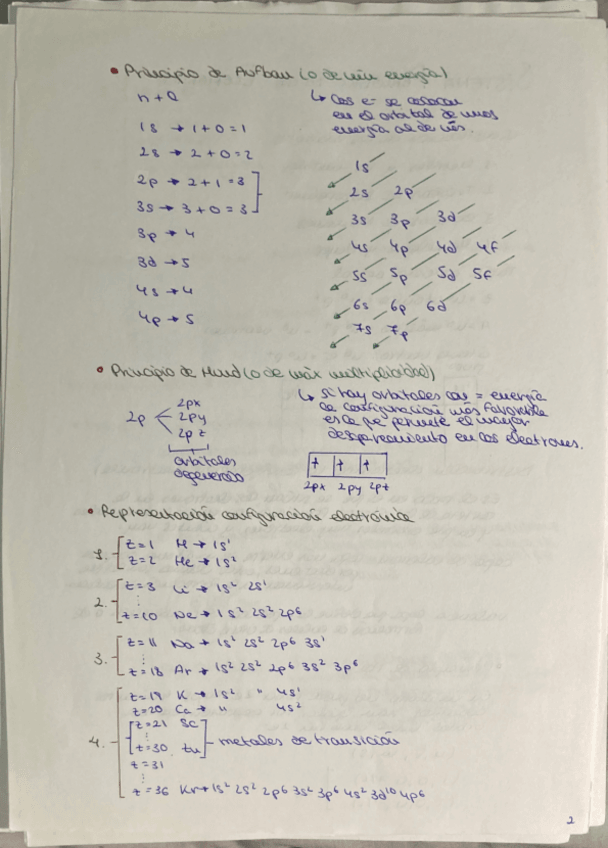 • Principio de Aufbau (o de mín energía)
n + l
↳ Los e- se colocan
en el orbital de menos
energía al de más.
1s → 1+0 = 1
2s → 2+0 = 2
2p → 2+1 = 3
3s → 3+0 = 3
3p → 4
3d → 5
4s → 4
4p → 5
1s
2s 2p
3s 3p 3d
4s 4p 4d 4f
5s 5p 5d 5f
6s 6p 6d
7s 7p
• Principio de Hund (o de máx multiplicidad)
↳ Si hay orbitales con = energía
la configuración más favorable
es la que permite el mayor
desapareamiento en los electrones.
2p
2px
2py
2pz
orbitales
degenerados
2px 2py 2pz
• Representación configuración electrónica
1. z=1 H → 1s¹
z=2 He → 1s²
2. z=3 Li → 1s² 2s¹
⋮
z=10 Ne → 1s² 2s² 2p⁶
3. z=11 Na → 1s² 2s² 2p⁶ 3s¹
⋮
z=18 Ar → 1s² 2s² 2p⁶ 3s² 3p⁶
4. z=19 K → 1s² " 4s¹
z=20 Ca → " 4s²
z=21 Sc
⋮
z=30 Zn
metales de transición
z=31
⋮
z=36 Kr → 1s² 2s² 2p⁶ 3s² 3p⁶ 4s² 3d¹⁰ 4p⁶
2